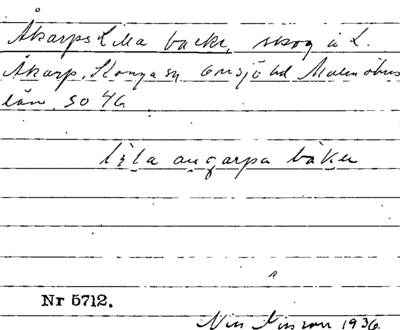 Åkarps Lilla backe, skog i L.
Åkarp, Slanga sn Onsjö hd Malmöhus
län. SO 46
lila augarpa baku
Nr 5712.
Nils Nilsson 1936